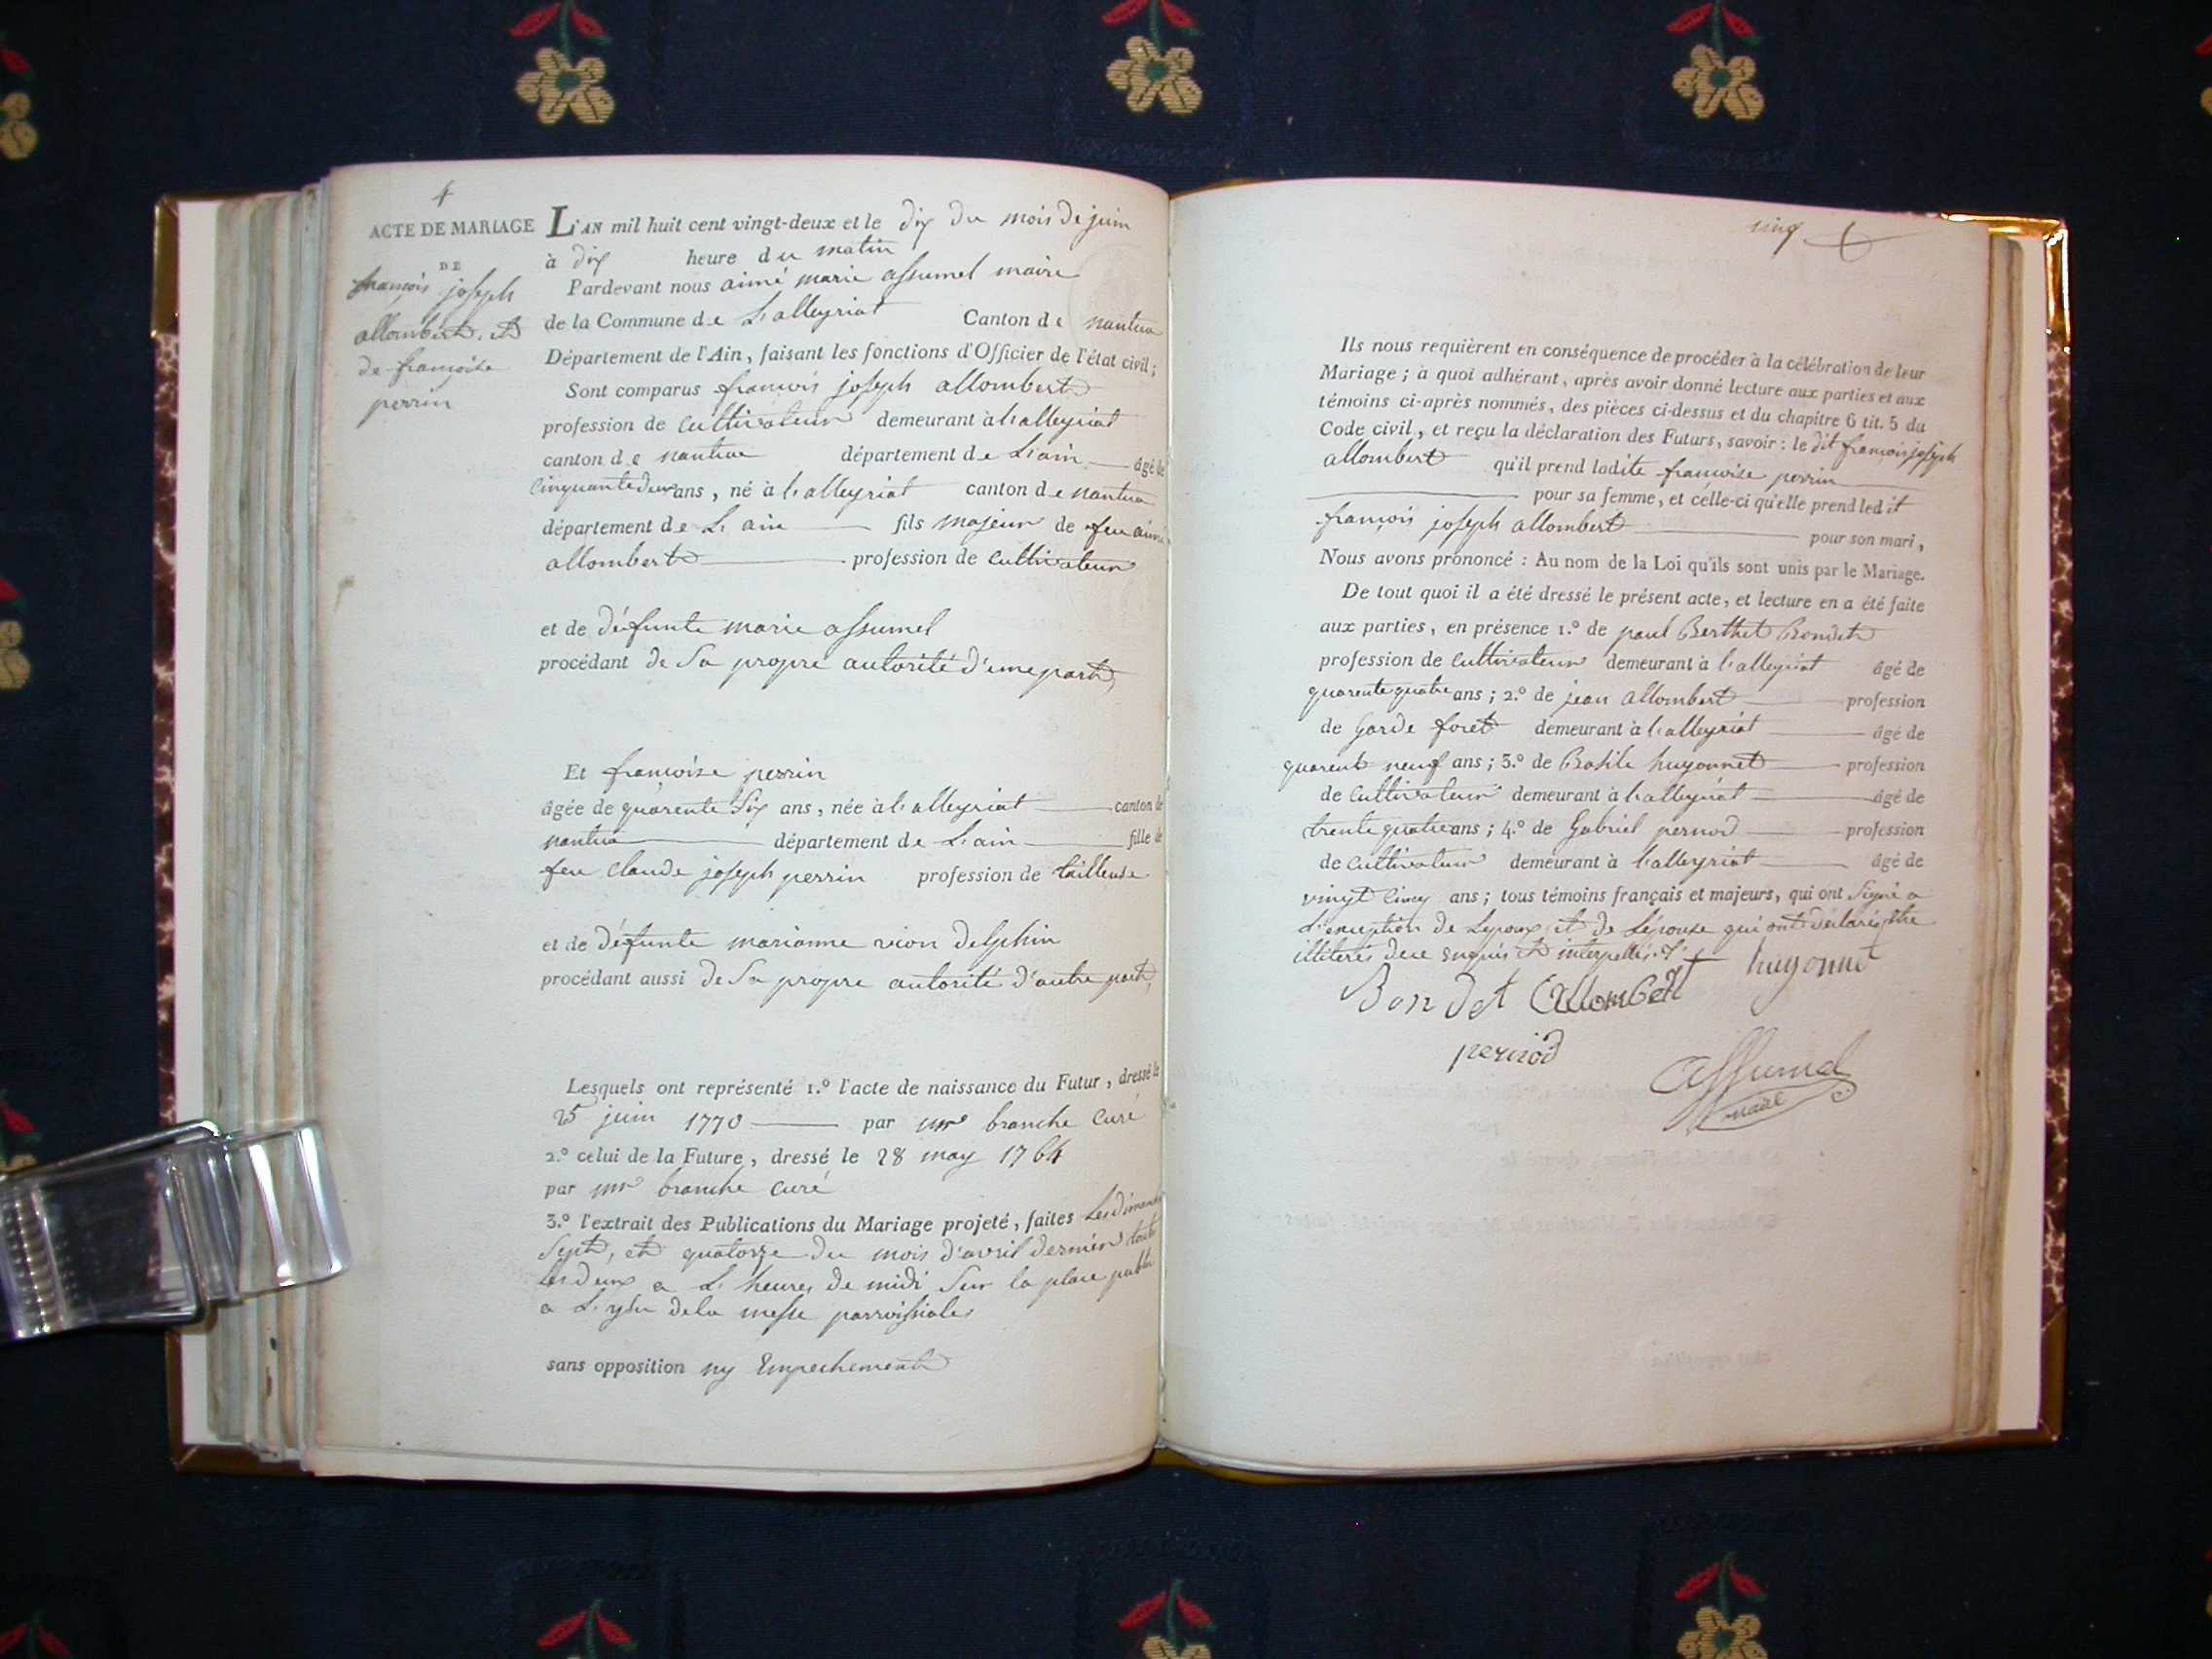 4
ACTE DE MARIAGE
DE
françois joseph
allombert, et
de françoise
perrin
L'AN mil huit cent vingt-deux et le dix du mois de juin
à dix heure du matin
Pardevant nous aimé marie assumel maire
de la Commune de L'alleyriat Canton de nantua
Département de l'Ain, faisant les fonctions d'Officier de l'état civil;
Sont comparus françois joseph allombert
profession de cultivateur demeurant à l'alleyriat
canton de nantua département de L'ain âgé de
cinquante deux ans, né à l'alleyriat canton de nantua
département de L'ain fils majeur de feu aimé
allombert profession de cultivateur
et de défunte marie assumel
procédant de sa propre autorité d'une part,
Et françoise perrin
âgée de quarente six ans, née à l'alleyriat canton de
nantua département de L'ain fille de
feu claude joseph perrin profession de tailleuse
et de défunte marianne vion delphin
procédant aussi de sa propre autorité d'autre part,
Lesquels ont représenté 1.º l'acte de naissance du Futur, dressé le
25 juin 1770 par mr branche curé
2.º celui de la Future, dressé le 28 may 1764
par mr branche curé
3.º l'extrait des Publications du Mariage projeté, faites Les dimanche
sept, et quatorze du mois d'avril dernier toute
les deux a L'heures de midi sur la place publi
a L'yssu de la messe parroissiales
sans opposition ny Empechement
cinq
Ils nous requièrent en conséquence de procéder à la célébration de leur
Mariage; à quoi adhérant, après avoir donné lecture aux parties et aux
témoins ci-après nommés, des pièces ci-dessus et du chapitre 6 tit. 5 du
Code civil, et reçu la déclaration des Futurs, savoir: le dit françois joseph
allombert qu'il prend ladite françoise perrin
pour sa femme, et celle-ci qu'elle prend ledit
françois joseph allombert pour son mari,
Nous avons prononcé: Au nom de la Loi qu'ils sont unis par le Mariage.
De tout quoi il a été dressé le présent acte, et lecture en a été faite
aux parties, en présence 1.º de paul Berthet Bondet
profession de cultivateur demeurant à l'alleyriat âgé de
quarente quatre ans; 2.º de jean allombert profession
de garde foret demeurant à l'alleyriat âgé de
quarente neuf ans; 3.º de Basile huyonnet profession
de cultivateur demeurant à l'alleyriat âgé de
trente quatre ans; 4.º de Gabriel pernod profession
de cultivateur demeurant à l'alleyriat âgé de
vingt cinq ans; tous témoins français et majeurs, qui ont signé a
L'exception de Lepoux et de Lépouse qui ont déclaré etre
illiteres de ce enquis et interpellés.
huyonnet
Bondet allombert
pernod
assumel
maire